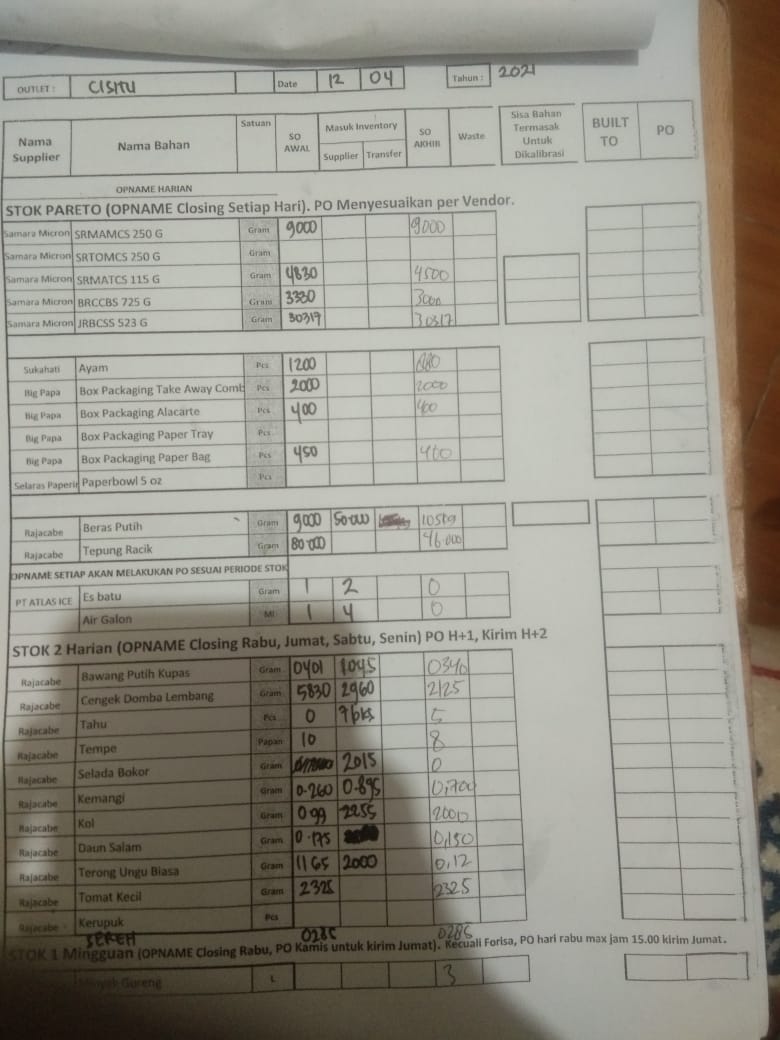 OUTLET : CISITU Date 12 04 Tahun : 2021
Nama Supplier Nama Bahan Satuan SO AWAL Masuk Inventory Supplier Transfer SO AKHIR Waste Sisa Bahan Termasak Untuk Dikalibrasi BUILT TO PO
OPNAME HARIAN
STOK PARETO (OPNAME Closing Setiap Hari). PO Menyesuaikan per Vendor.
Samara Micron SRMAMCS 250 G Gram 9000 9000
Samara Micron SRTOMCS 250 G Gram
Samara Micron SRMATCS 115 G Gram 4830 4500
Samara Micron BRCCBS 725 G Gram 3330 3000
Samara Micron JRBCSS 523 G Gram 30317 30317
Sukahati Ayam Pcs 1200
Big Papa Box Packaging Take Away Comb Pcs 2000 2000
Big Papa Box Packaging Alacarte Pcs 400 400
Big Papa Box Packaging Paper Tray Pcs
Big Papa Box Packaging Paper Bag Pcs 450 400
Selaras Paperin Paperbowl 5 oz Pcs
Rajacabe Beras Putih Gram 9000 50000
Rajacabe Tepung Racik Gram 80000 46000
OPNAME SETIAP AKAN MELAKUKAN PO SESUAI PERIODE STOK
PT ATLAS ICE Es batu Gram 1 2 0
Air Galon Ml 1 4 0
STOK 2 Harian (OPNAME Closing Rabu, Jumat, Sabtu, Senin) PO H+1, Kirim H+2
Rajacabe Bawang Putih Kupas Gram 0401 1045 0340
Rajacabe Cengek Domba Lembang Gram 5830 2960 2125
Rajacabe Tahu Pcs 0 7bks 5
Rajacabe Tempe Papan 10 8
Rajacabe Selada Bokor Gram 2015 0
Rajacabe Kemangi Gram 0.260 0.895 0,700
Rajacabe Kol Gram 099 2255 2000
Rajacabe Daun Salam Gram 0.175 0,150
Rajacabe Terong Ungu Biasa Gram 1165 2000 0,12
Rajacabe Tomat Kecil Gram 2325 2325
Rajacabe Kerupuk Pcs
SEREH 0285 0285
STOK 1 Mingguan (OPNAME Closing Rabu, PO Kamis untuk kirim Jumat). Kecuali Forisa, PO hari rabu max jam 15.00 kirim Jumat.
Minyak Goreng L 3